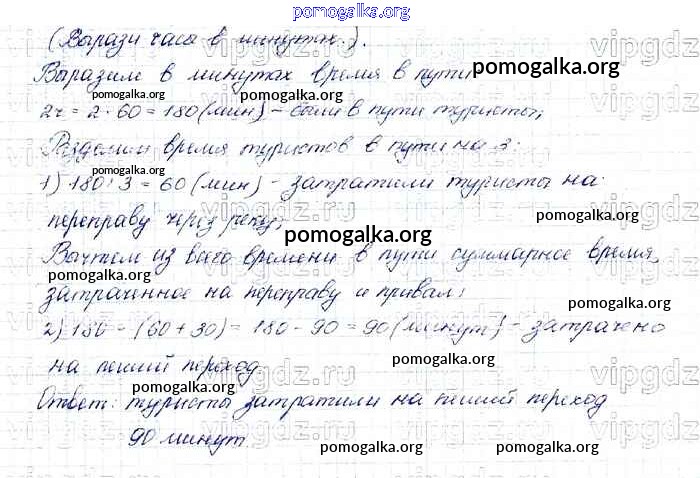 pomogalka.org
(Вырази часы в минутах.).
Выразим в минутах время в пути
pomogalka.org
2ч = 2 · 60 = 180 (мин) – были в пути туристы;
pomogalka.org
Разделим время туристов в пути на 3:
pomogalka.org
1) 180 : 3 = 60 (мин) – затратили туристы на
переправу через реку;
pomogalka.org
Вычтем из всего времени в пути суммарное время,
pomogalka.org
затраченное на переправу и привал:
pomogalka.org
2) 180 – (60 + 30) = 180 – 90 = 90 (минут) – затрачено
pomogalka.org
на пеший переход.
pomogalka.org
Ответ: туристы затратили на пеший переход
90 минут
pomogalka.org
pomogalka.org